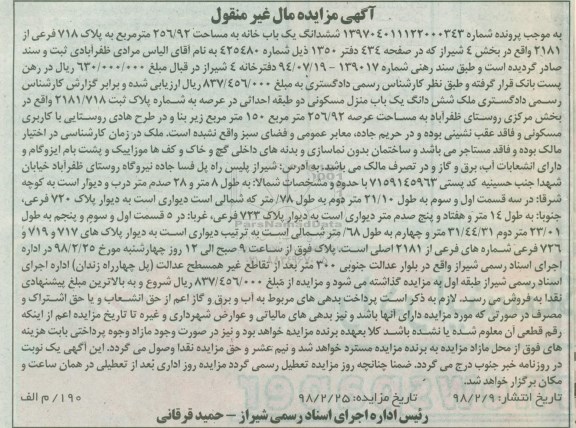 آگهی مزایده مال غیر منقول
به موجب پرونده شماره ۱۳۹۷۰۴۰۱۱۱۲۲۰۰۰۳۴۳ ششدانگ یک باب خانه به مساحت ۲۵۶/۹۲ مترمربع به پلاک ۷۱۸ فرعی از
۲۱۸۱ واقع در بخش ۴ شیراز که در صفحه ۴۳۴ دفتر ۱۳۵۰ ذیل شماره ۴۲۵۴۸۰ به نام آقای الیاس مرادی ظفرآبادی ثبت و سند
صادر گردیده است و طبق سند رهنی شماره ۱۳۹۰۱۷ - ۹۴/۰۷/۱۹ دفترخانه ۴ شیراز در قبال مبلغ ۶۳۰/۰۰۰/۰۰۰ ریال در رهن
پست بانک قرار گرفته و طبق نظر کارشناس رسمی دادگستری به مبلغ ۸۳۷/۴۵۶/۰۰۰ ریال ارزیابی شده و برابر گزارش کارشناس
رسمی دادگستری ملک شش دانگ یک باب منزل مسکونی دو طبقه احداثی در عرصه به شماره پلاک ثبت ۲۱۸۱/۷۱۸ واقع در
بخش مرکزی روستای ظفرآباد به مساحت عرصه ۲۵۶/۹۲ متر مربع ۱۵۰ متر مربع زیر بنا و در طرح هادی روستایی با کاربری
مسکونی و فاقد عقب نشینی بوده و در حریم جاده، معابر عمومی و فضای سبز واقع نشده است. ملک در زمان کارشناسی در اختیار
مالک بوده و فاقد مستاجر می باشد و ساختمان بدون نماسازی و بدنه های داخلی گچ و خاک و کف ها موزاییک و پشت بام ایزوگام و
دارای انشعابات آب، برق و گاز و در تصرف مالک می باشد، به آدرس: شیراز پلیس راه پل فسا جاده نیروگاه روستای ظفرآباد خیابان
شهدا جنب حسینیه کد پستی ۷۱۵۹۱۴۵۹۶۳ با حدود و مشخصات شمالا: به طول ۸ متر و ۲۸ صدم متر درب و دیوار است به کوچه
شرقا: در سه قسمت اول و سوم به طول ۲۱/۱۰ متر دوم به طول ۷۸/ متر که شمالی است دیواری است به دیوار پلاک ۷۲۰ فرعی،
جنوبا: به طول ۱۴ متر و هفتاد و پنج صدم متر دیواری است به دیوار پلاک ۷۲۳ فرعی، غربا: در ۵ قسمت اول و سوم و پنجم به طول
۲۳/۰۱ متر دوم ۳۱/۴۴/۲۱ متر و چهارم به طول ۶۸/ متر شمالی است به ترتیب دیواری است به دیوار پلاک های ۷۱۷ و ۷۱۹ و
۷۲۶ فرعی شماره های فرعی از ۲۱۸۱ اصلی است. پلاک فوق از ساعت ۹ صبح الی ۱۲ روز چهارشنبه مورخ ۹۸/۲/۲۵ در اداره
اجرای اسناد رسمی شیراز واقع در بلوار عدالت جنوبی ۳۰۰ متر بعد از تقاطع غیر همسطح عدالت (پل چهارراه زندان) اداره اجرای
اسناد رسمی شیراز طبقه اول به مزایده گذاشته می شود و مزایده از مبلغ ۸۳۷/۴۵۶/۰۰۰ ریال شروع و به بالاترین مبلغ پیشنهادی
نقدا به فروش می رسد. لازم به ذکر است پرداخت بدهی های مربوط به آب و برق و گاز اعم از حق انشعاب و یا حق اشتراک و
مصرف در صورتی که مورد مزایده دارای آنها باشد و نیز بدهی های مالیاتی و عوارض شهرداری و غیره تا تاریخ مزایده اعم از اینکه
رقم قطعی آن معلوم شده یا نشده باشد کلا بعهده برنده مزایده خواهد بود و نیز در صورت وجود مازاد وجوه پرداختی بابت هزینه
های فوق از محل مازاد مزایده به برنده مزایده مسترد خواهد شد و نیم عشر و حق مزایده نقدا وصول می گردد، این آگهی یک نوبت
در روزنامه خبر جنوب درج می گردد، ضمنا چنانچه روز مزایده تعطیل رسمی گردد مزایده روز اداری بعد از تعطیلی در همان ساعت و
مکان برگزار خواهد شد.
تاریخ انتشار: ۹۸/۲/۹ تاریخ مزایده: ۹۸/۲/۲۵ ۱۹۰/م الف
رئیس اداره اجرای اسناد رسمی شیراز - حمید فرقانی